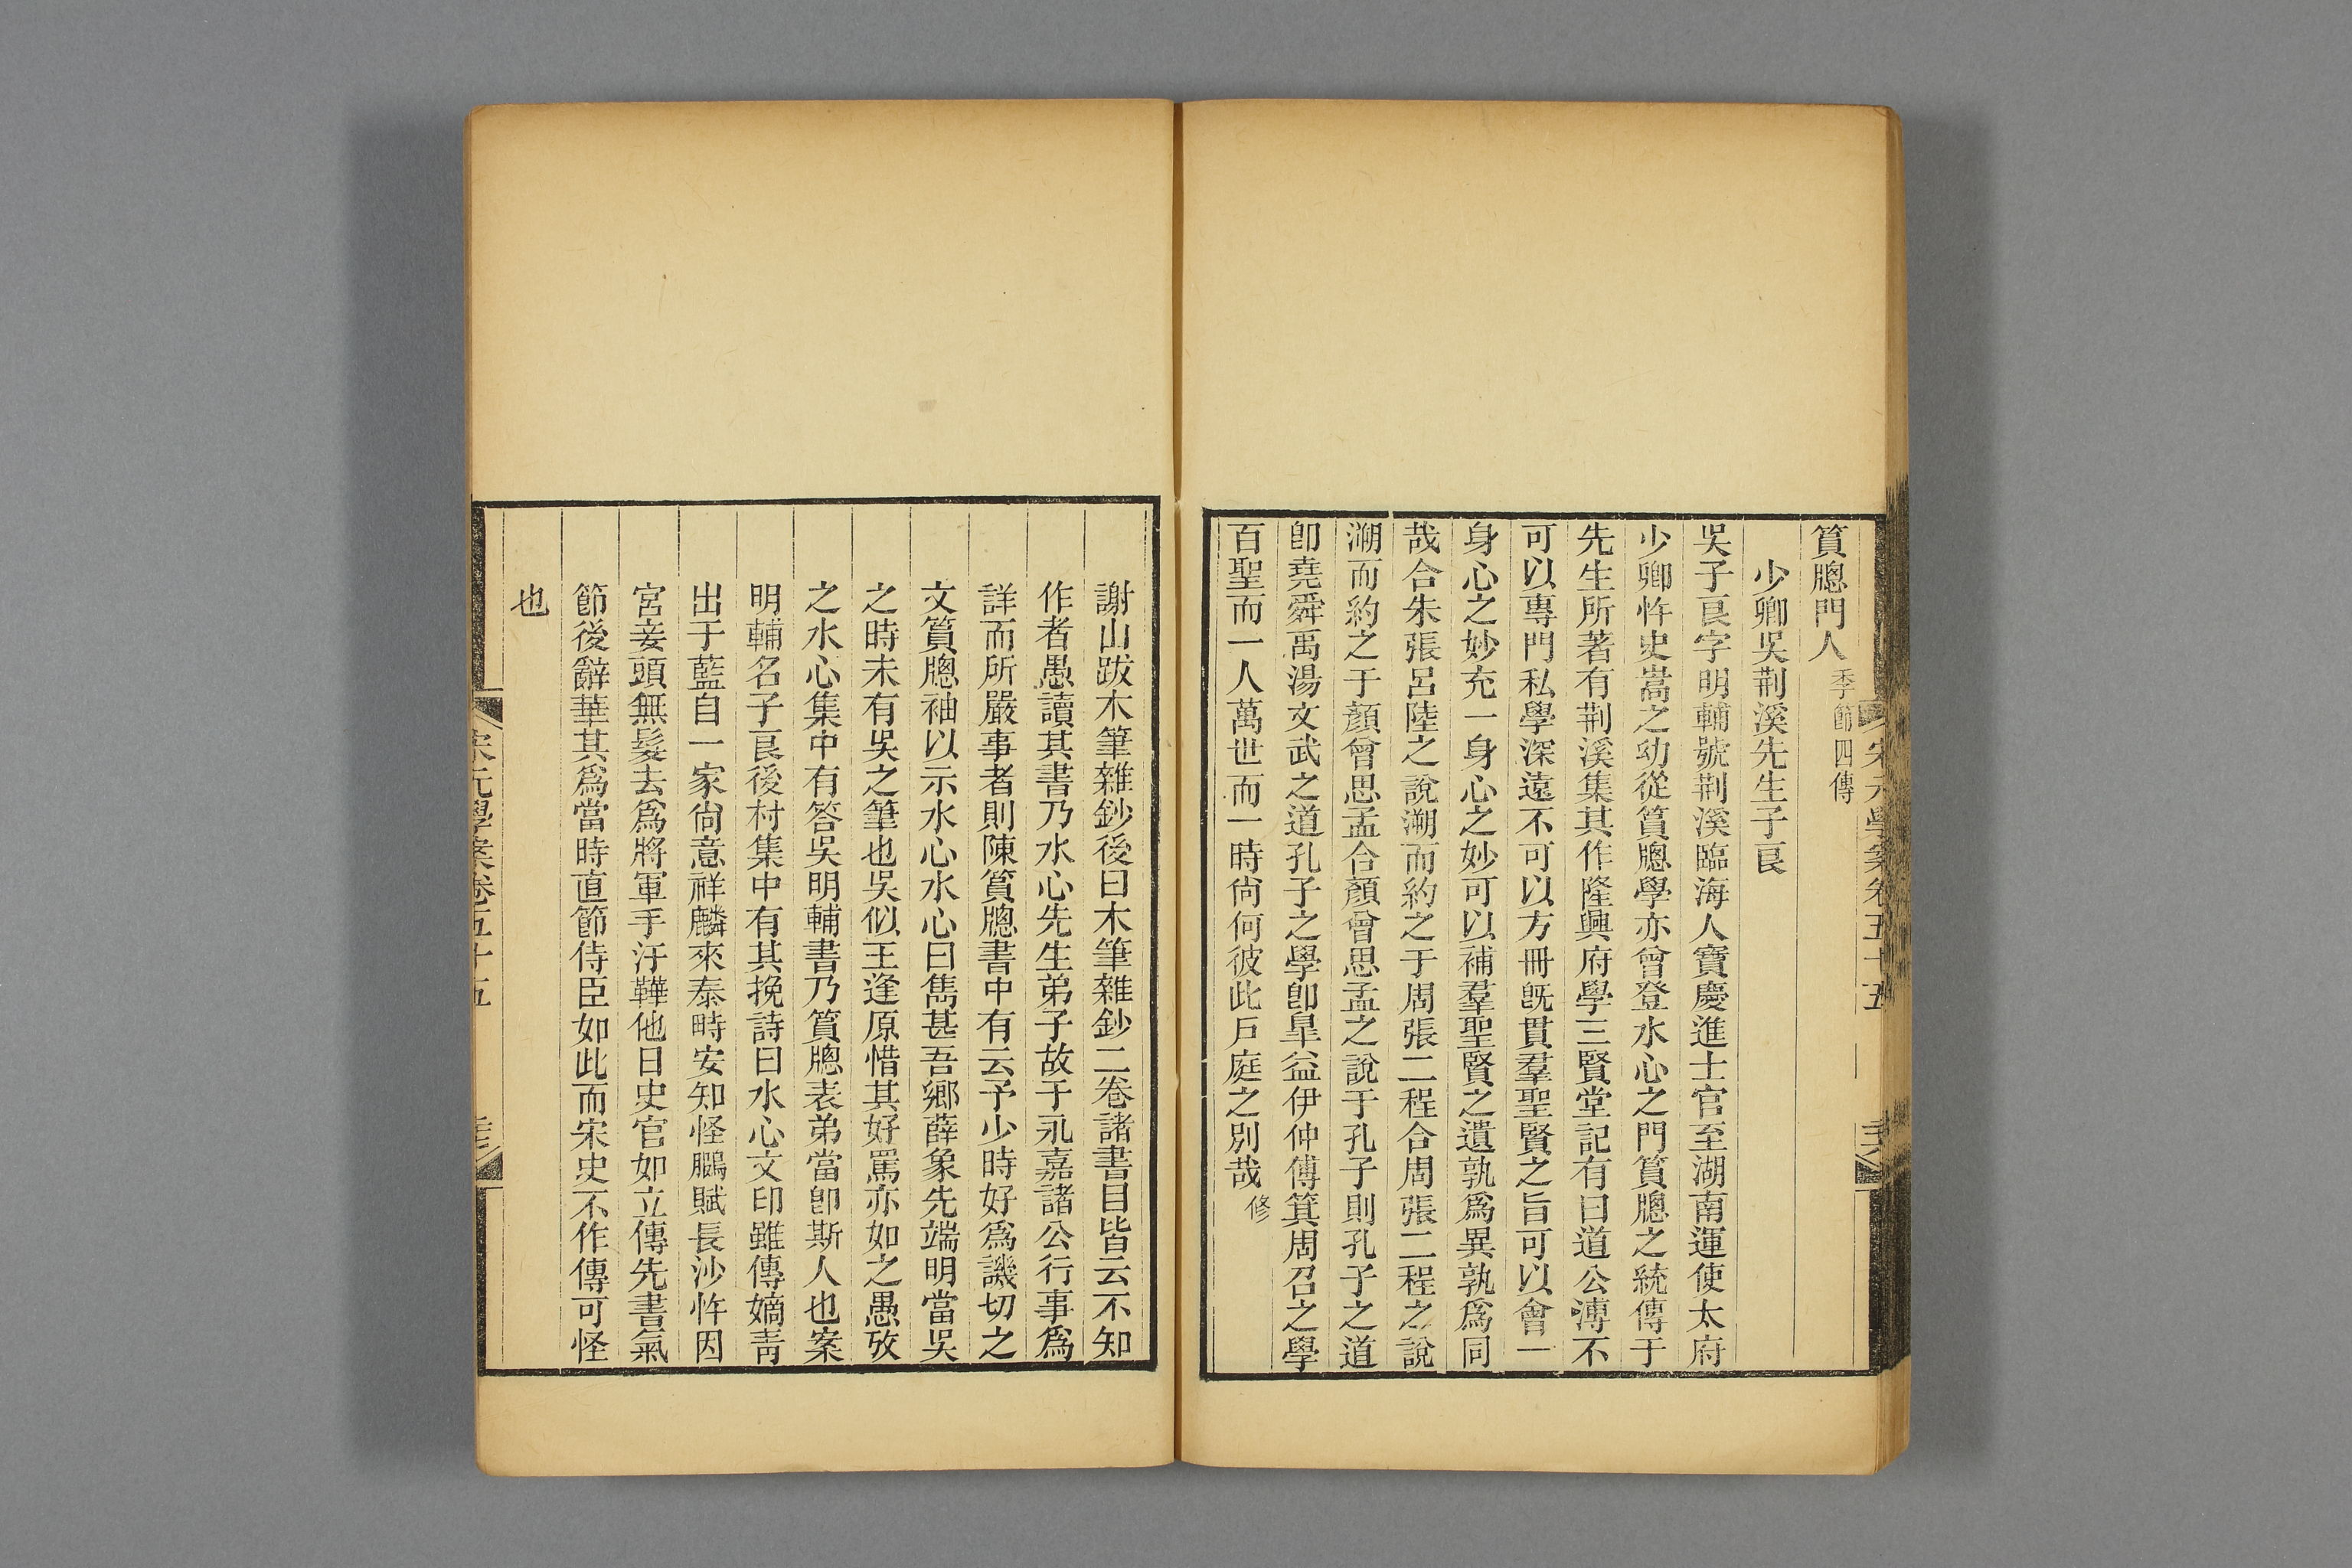 篔牎門人季節四傳
少卿吳荆溪先生子良
吳子良字明輔號荆溪臨海人寶慶進士官至湖南運使太府
少卿忤史嵩之幼從篔牎學亦曾登水心之門篔牎之統傳于
先生所著有荆溪集其作隆興府學三賢堂記有曰道公溥不
可以專門私學深遠不可以方冊旣貫羣聖賢之旨可以會一
身心之妙充一身心之妙可以補羣聖賢之遺孰爲異孰爲同
哉合朱張呂陸之說溯而約之于周張二程合周張二程之說
溯而約之于顏曾思孟合顏曾思孟之說于孔子則孔子之道
卽堯舜禹湯文武之道孔子之學卽臯益伊仲傅箕周召之學
百聖而一人萬世而一時尙何彼此戶庭之別哉修
謝山跋木筆雜鈔後曰木筆雜鈔二卷諸書目皆云不知
作者愚讀其書乃水心先生弟子故于永嘉諸公行事爲
詳而所嚴事者則陳篔牎書中有云予少時好爲譏切之
文篔牎袖以示水心水心曰雋甚吾鄕薛象先端明當吳
之時未有吳之筆也吳似王逢原惜其好罵亦如之愚攷
之水心集中有答吳明輔書乃篔牎表弟當卽斯人也案
明輔名子良後村集中有其挽詩曰水心文印雖傳嫡靑
出于藍自一家尙意祥麟來泰畤安知怪鵩賦長沙忤因
宮妾頭無髮去爲將軍手汙鞾他日史官如立傳先書氣
節後辭華其爲當時直節侍臣如此而宋史不作傳可怪
也
宋元學案卷五十五